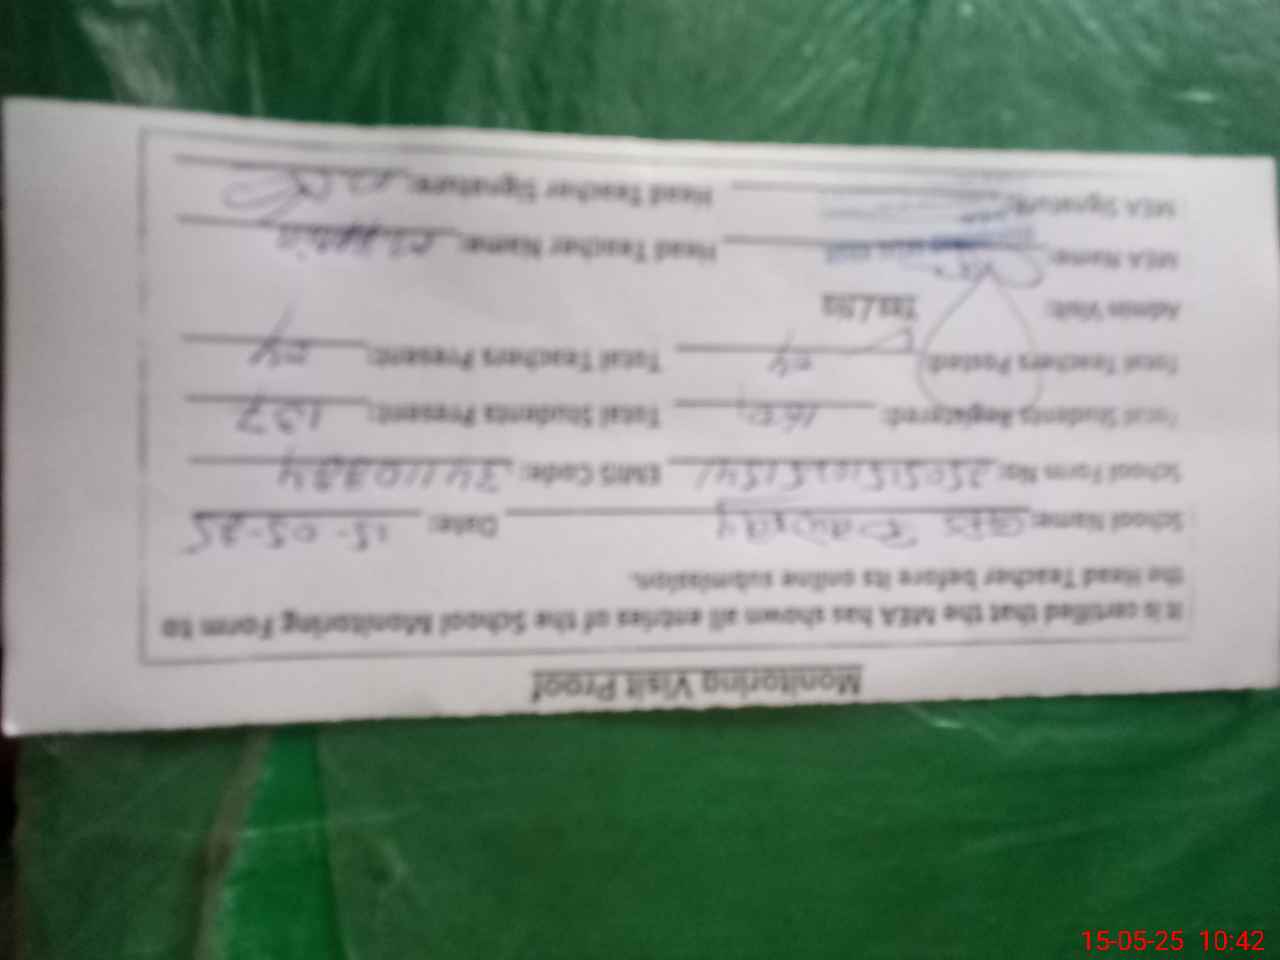 Monitoring Visit Proof
It is certified that the MEA has shown all entries of the School Monitoring Form to
the Head Teacher before its online submission.
School Name: GPS Date: 15-05-25
School Form No: EMIS Code:
Total Students Registered: Total Students Present: 137
Total Teachers Posted: 04 Total Teachers Present: 04
Admin Visit: Yes / No
MEA Name: Head Teacher Name:
MEA Signature: Head Teacher Signature:
15-05-25 10:42